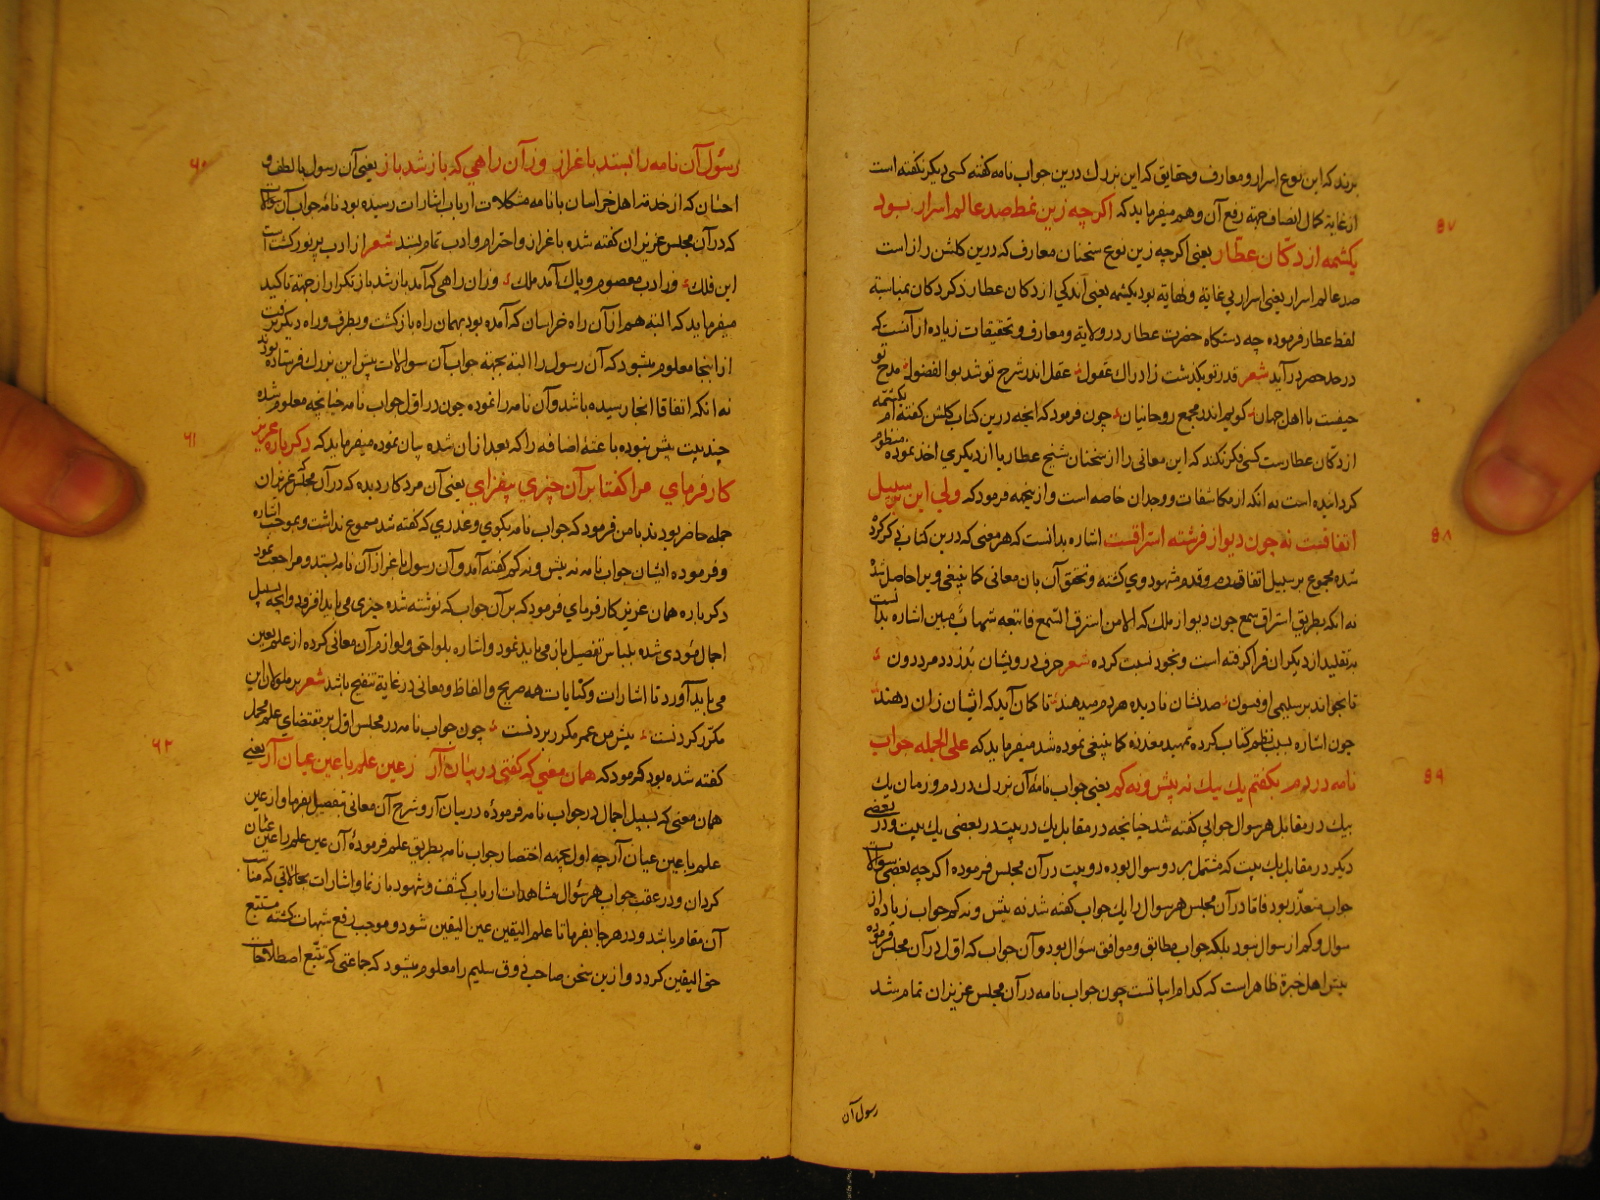 برند که این نوع اسرار و معارف و حقایق که این بزرك درین جواب نامه کفته کسی دیکر نکفته است
از غایة کمال انصاف جهة رفع آن وهم میفرماید که اکرچه زین نمط صد عالم اسرار بود
۵۷
یکشمه از دکان عطّار یعنی اکرچه زین نوع سخنان معارف که درین کلشن راز است
صد عالم اسرار یعنی اسرار بی غایة و نهایة بود یکشمه یعنی اندکی از دکان عطار ذکر دکان بمناسبة
لفظ عطار فرموده چه دستکاه حضرت عطار در ولایة و معارف و تحقیقات زیاده از آنست که
در حد حصر درآید شعر قدر تو بکذشت ز ادراك عقول عقل اندر شرح تو شد بوالفضول مدح تو
حیفست با اهل جهان کویم اندر مجمع روحانیان چون فرمود که انچه درین کتاب کلشن کفته ام یکشمه
از دکان عطارست کسی فکر نکند که این معانی را از سخنان شیخ عطار یا از دیکری اخذ نموده منظوم
کردانیده است نه انکه از مکاشفات و وجدان خاصه است و ازینجهه فرمود که ولی این بر سبیل
اتفاقست نه چون دیو از فرشته استراقست اشاره بدانست که هر معنی که درین کتاب ذکر کرد
۵۸
شده مجموع بر سبیل اتفاق قدم و قدم شهود وی کشته و تحقق آن بان معانی کما ینبغی ویرا حاصل شده
نه انکه بطریق استراق سمع چون دیو از ملك که الا من استرق السّمع فاتبعه شهاب مبین اشاره بدانست
بتقلید از دیکران فرا کرفته است و بخود نسبت کرده شعر حرف درویشان بدزدد مرد دون
تا بخواند بر سلیمی او فسون صد نشان نادیده هردم میدهند تا کمان آید که ایشان زان دهند
چون اشاره بسبب نظم کتاب کرده تمهید معذرة کما ینبغی نموده شد میفرماید که علی الجمله جواب
نامه در دم بکفتم یك بیك نه بیش و نه کم یعنی جواب نامهٔ آن بزرك در دم و زمان یك
۵۹
بیك در مقابل هر سوال جوابی کفته شد چنانچه در مقابل یك بیت در بعضی یك بیت و در بعضی
دیکر در مقابل یك بیت که مشتمل بر دو سوال بوده دو بیت در آن مجلس فرموده اکرچه بعضی سوالات
جواب متعذّر بود فاما در آن مجلس هر سوال را یك جواب کفته شد نه بیش و نه کم جواب زیاده از
سوال و کم از سوال نبود بلکه جواب مطابق و موافق سؤال بود و آن جواب که اول در آن مجلس فرموده
بیش اهل خبرة ظاهر است که کدام ابیاتست چون جواب نامه در آن مجلس عزیزان تمام شد
رسول آن
رسول آن نامه را بستد باعزاز وزآن راهی که باز شد باز یعنی آن رسول با لطف و
۶۰
احسان که از خدمة اهل خراسان با نامه مشکلات ارباب اشارات رسیده بود نامه جواب آن سوالات
که در آن مجلس عزیزان کفته شده باعزاز و احترام و ادب تمام بستد شعر از ادب پر نور کشت
این فلك وز ادب معصوم و پاك آمد ملك وزان راهی که آمد باز شد باز تکرار از جهة تاکید
میفرماید که البته هم از آن راه خراسان که آمده بود بهمان راه باز کشت و بطرف و راه دیکر نرفت
از اینجا معلوم میشود که آن رسول را البته بجهة جواب آن سوالات پیش این بزرك فرستاده بودند
نه انکه اتفاقا انجا رسیده باشد و آن نامه را نموده چون در اوّل جواب نامه چنانچه معلوم شده
چند بیت بیش نبوده باعثهٔ اضافه را که بعد از ان شده بیان نموده میفرماید که دکر باره عزیز
۶۱
کارفرمای مرا کفتا بر آن چیزی بیفزای یعنی آن مرد کاردیده که در آن مجلس عزیزان
جمله حاضر بودند با من فرمود که جواب نامه بکوی و عذری که کفته شد مسموع نداشت و بموجب اشاره
و فرموده ایشان جواب نامه نه بیش و نه کم کفته آمد و آن رسول باعزاز آن نامه بستد و مراجعت نمود
دکر باره همان عزیز کارفرمای فرمود که بر آن جواب که نوشته شده چیزی می باید افزود و انچه بسبیل
اجمال مؤدی شده بلباس تفصیل باز می باید نمود و اشاره بلواحق و لوازم آن معانی کرده از علم بعین
می باید آورد تا اشارات و کنایات همه صریح و الفاظ و معانی در غایة تنقیح باشد شعر بر ملولان این
مکرّر کردنست بیش من عمر مکرر بردنست چون جواب نامه در مجلس اول بر مقتضای علم مجمل
کفته شده بود فرمود که همان معنی که کفتی در بیان آر ز عین علم با عین عیان آر یعنی
۶۲
همان معنی که بسبیل اجمال در جواب نامه فرمودهٔ در بیان آر و شرح آن معانی بتفصیل بفرما و از عین
علم با عین عیان آر چه اول بجهة اختصار جواب نامه بطریق علم فرمودهٔ آن عین علم را عین عیان
کردان و در عقب جواب هر سؤال مشاهدات ارباب کشف و شهود باز نما و اشارات بحالاتی که مناسب
آن مقام باشد و در هر جا بفرما تا علم الیقین عین الیقین شود و موجب رفع شبهات کشته مستتبع
حق الیقین کردد و ازین سخن صاحب ذوق سلیم را معلوم میشود که جماعتی که تتبّع اصطلاحات